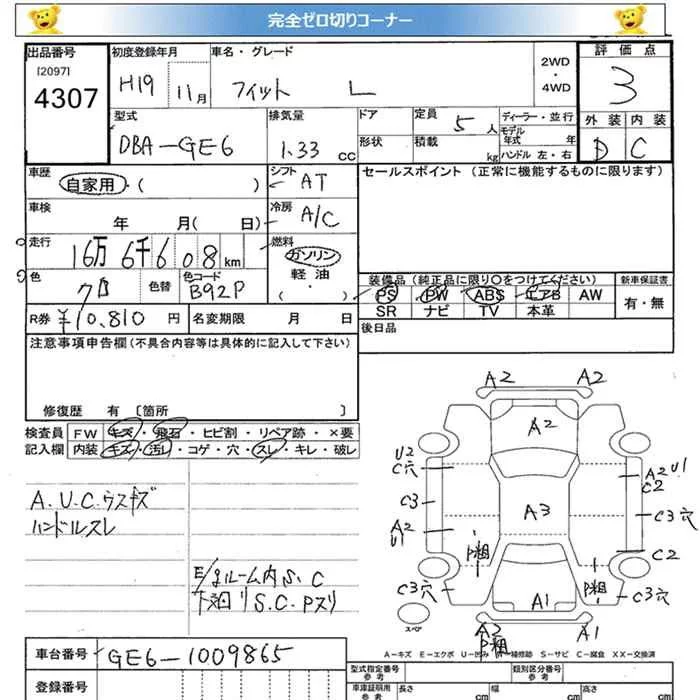 完全ゼロ切りコーナー
出品番号 初度登録年月 車名・グレード 2WD ・ 4WD 評価点
[2097]
4307 H19 11月 フィット L 3
型式 排気量 ドア 定員 5人 ディーラー・並行 外装 内装
DBA-GE6 1.33cc 形状 積載 kg モデル年式 年 ハンドル 左・右 D C
車歴 シフト セールスポイント (正常に機能するものに限ります)
自家用・( ) AT
車検 冷房
年 月( 日) A/C
走行 燃料
16万6千608km ガソリン
色 色替 色コード 軽油・ 装備品 (純正品に限り○をつけてください) 新車保証書
クロ B92P ( ) PS PW ABS エアB AW 有・無
R券 ¥10,810円 名変期限 月 日 SR ナビ TV 本革
注意事項申告欄(不具合内容等は具体的に記入して下さい) 後日品
修復歴 有 〔箇所 〕
検査員 FW キズ・飛石・ヒビ割・リペア跡・×要
記入欄 内装 キズ・汚レ・コゲ・穴・スレ・キレ・破レ
A.U.C.ウスキズ
ハンドルスレ
E/gルーム内S.C
下廻りS.C.Pヌリ
A2 A2
A2
U2
C穴 A2 U1
C2
C3 A3 C3穴
A2
U1 C2
P粗 P粗
C3穴 A1 C3穴
スペア A2 A1
P粗
A-キズ E-エクボ U-凹み P-補修跡 S-サビ C-腐食 XX-交換済
車台番号 GE6-1009865
型式指定番号 参考 類別区分番号 参考
登録番号 車庫証明用 参考 長さ cm 幅 cm 高さ cm